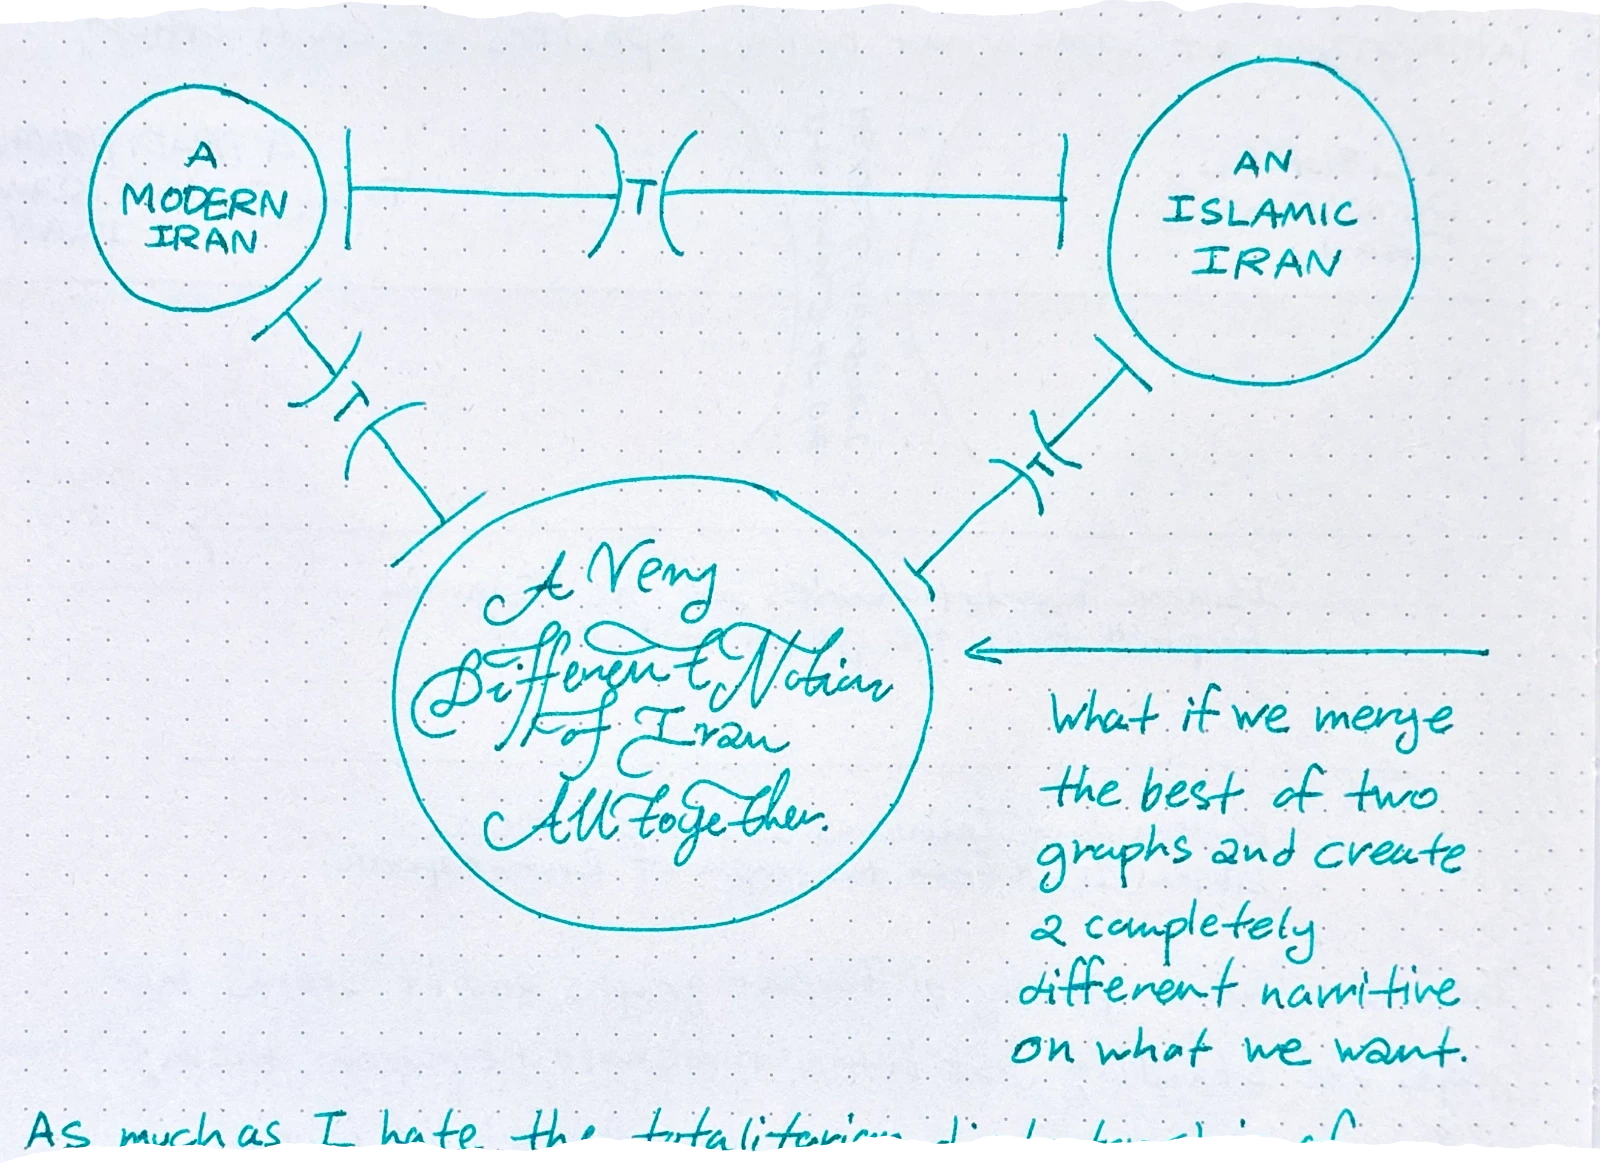 A
MODERN
IRAN
T
AN
ISLAMIC
IRAN
T
T
A Very
Different Notion
of Iran
All together.
What if we merge
the best of two
graphs and create
a completely
different narritive
on what we want.
As much as I hate the totalitarian of